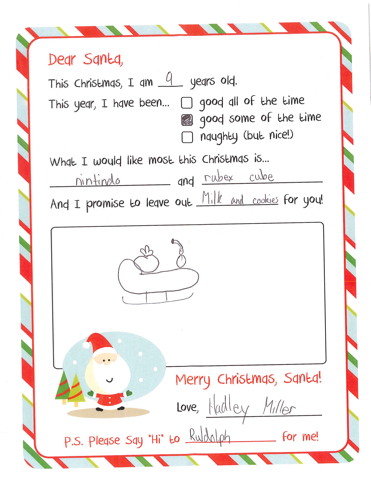 Dear Santa,
This Christmas, I am 9 years old.
This year, I have been... good all of the time
good some of the time
naughty (but nice!)
What I would like most this Christmas is...
nintindo and rubex cube
And I promise to leave out Milk and cookies for you!
Merry Christmas, Santa!
Love, Hadley Miller
P.S. Please Say "Hi" to Ruldolph for me!